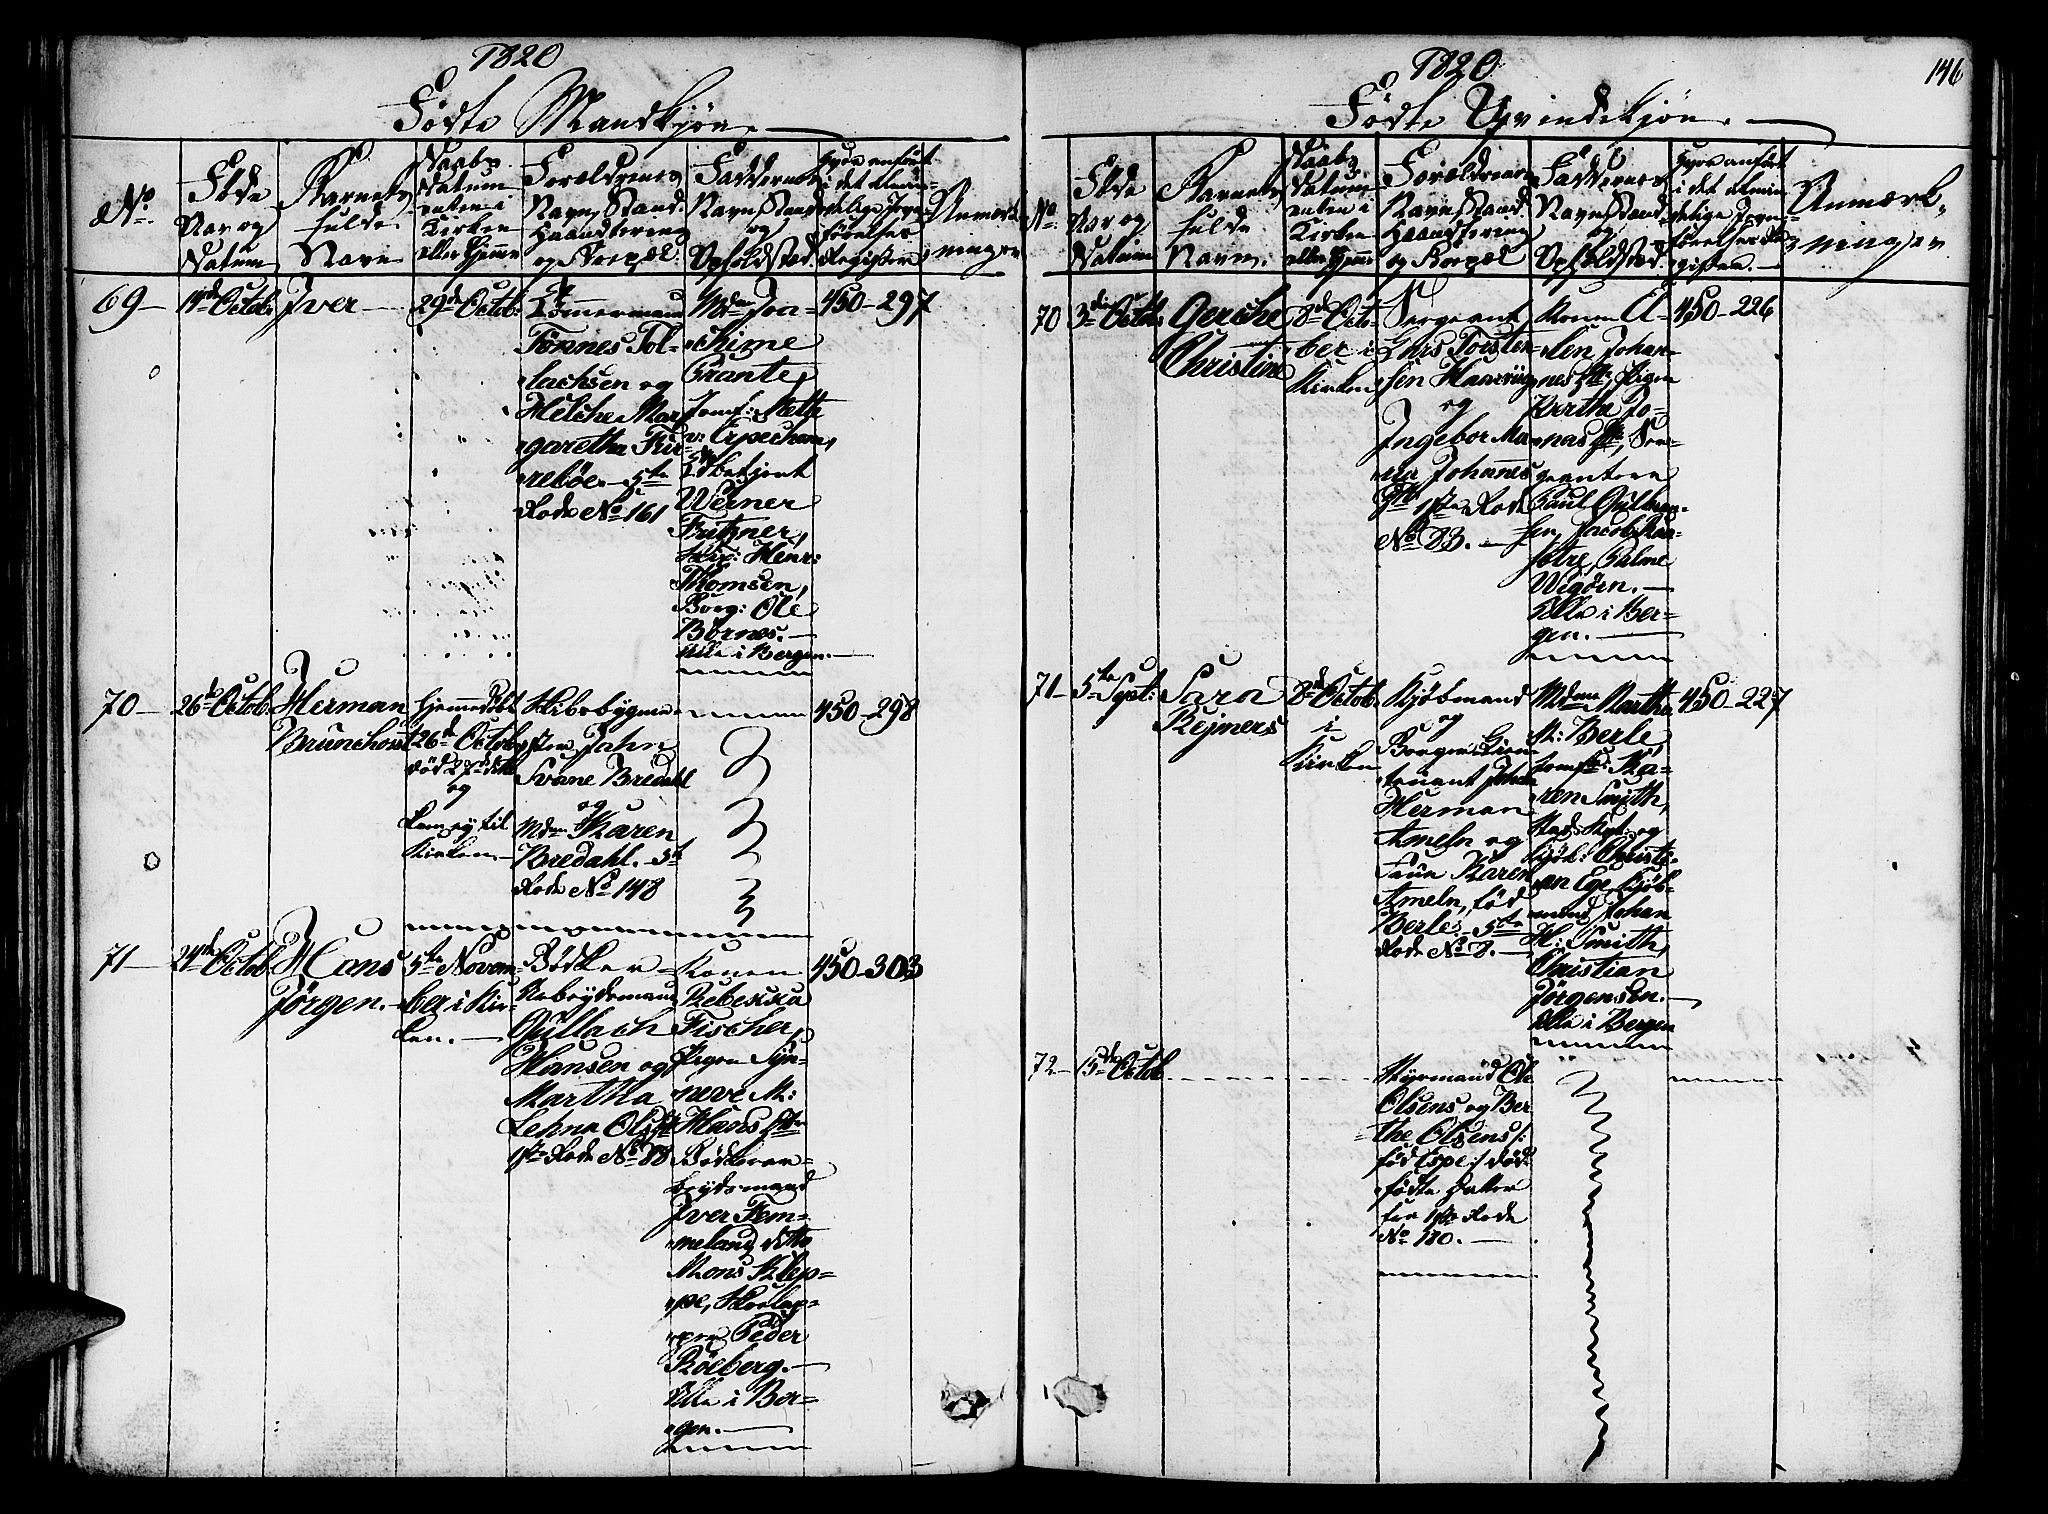 1820
Fødte Mandkjøn
No.
Føde
Aar og
Datum
Barnets
fulde
Navn
Daabs
Datum
enten i
Kirken
eller Hjemme
Forældrenes
Navn, Stand
Haandtering
og Bopæl
Faddernes
Navn, Stand
og
Opholdsted
Hvor anført
i det almin-
delige Jevn-
førelses
Register
Anmærk
ninger
69
14de Octob:
Iver
29de Octob:
Tømmermand
Tønnes Tol-
lachsen og
Helche Mar
garetha Fir-
reböe 5te
Rode No 161
Mdm Joa-
chime
Grante,
Jomf: Mette
Werner
Fritzner,
Henr:
Thomsen,
Borg: Ole
Börnes.
Alle i Bergen.
450-297
70
26de Octob
Herman
Brunchorst
hjemmedöbt
26de Octob
död 27de
og
kom ej til
Kirken
Skibsbygme-
ster Jahn
Svane Bredahl
og
Mdm Karen
Bredahl. 5te
Rode No 148
450-298
71
24de Octob
Hans
Jörgen.
5te Novem-
ber i Kir-
ken.
Bödker-
Arbeydsmand
Gullach
Hansen og
Martha
Lehna Olsdt
17de Rode No 88
Konen
Rebekka
Fischer,
Pigen Syn-
neve M:
Hans Dtr
Bödkerar-
beydsmand
Iver Fem-
meland, ditto
Mons Klep-
pe, Skolap-
Peder
Röeberg.
Alle i Ber-
gen.
450-303
1820
146
Fødte Qvindekjøn
No.
Føde
Aar og
Datum
Barnets
fulde
Navn.
Daabs
Datum
enten i
Kirken
eller Hjemme
Forældrenes
Navn, Stand
Haandtering
og Bopæl
Faddernes
Navn, Stand
og
Opholdsted.
Hvor anført
i det almin
delige Jevn-
førelses Re-
gister.
Anmærk-
ninger
70
3die Octob
Gerche
Christine
8de Octo-
ber i
Kirken
Sergeant
Lars Torsten-
sen Haavrüg
og
Ingebor Ma-
ria Johannes
Dtr 17de Rode
No 83.
Konen A-
len Johan-
nes Dtr, Pigen
Berthe Jo-
nas Dtr, Ser-
geantene
Paul Gullach-
sen, Jacob
Palme
Wigörn.
Alle i Ber-
gen.
450-226
71
5te Sept:
Sara
Rejners
8de Octob
i
Kirken
Kjöbmand
og
Borger Lieu-
tenant Johan
Herman
Ameln og
Frue Karen
Ameln, föd
Berle. 5te
Rode No 8.
Mdm Martha
M: Berle,
Jomfr: Ka-
ren Smith,
og
Kjöb: Christi-
an Ege, Kjöb-
mand Johan
H: Smith,
Christian
Jörgensen.
Alle i Bergen
450-227
72
15de Octob
Styrmand Ole
Olsens og Ber
the Olsens /:
föd Espe:/ död-
födte Datter
17de Rode
No 180.